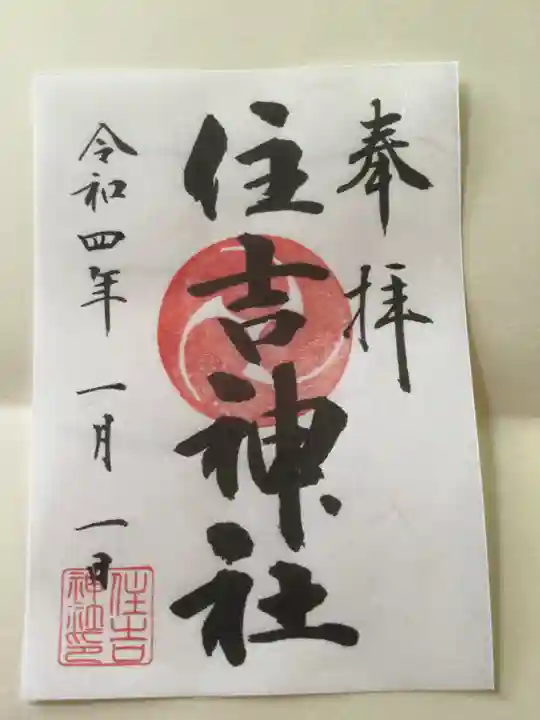 奉拝
住吉神社
令和四年 一月 一日
住吉
神社印